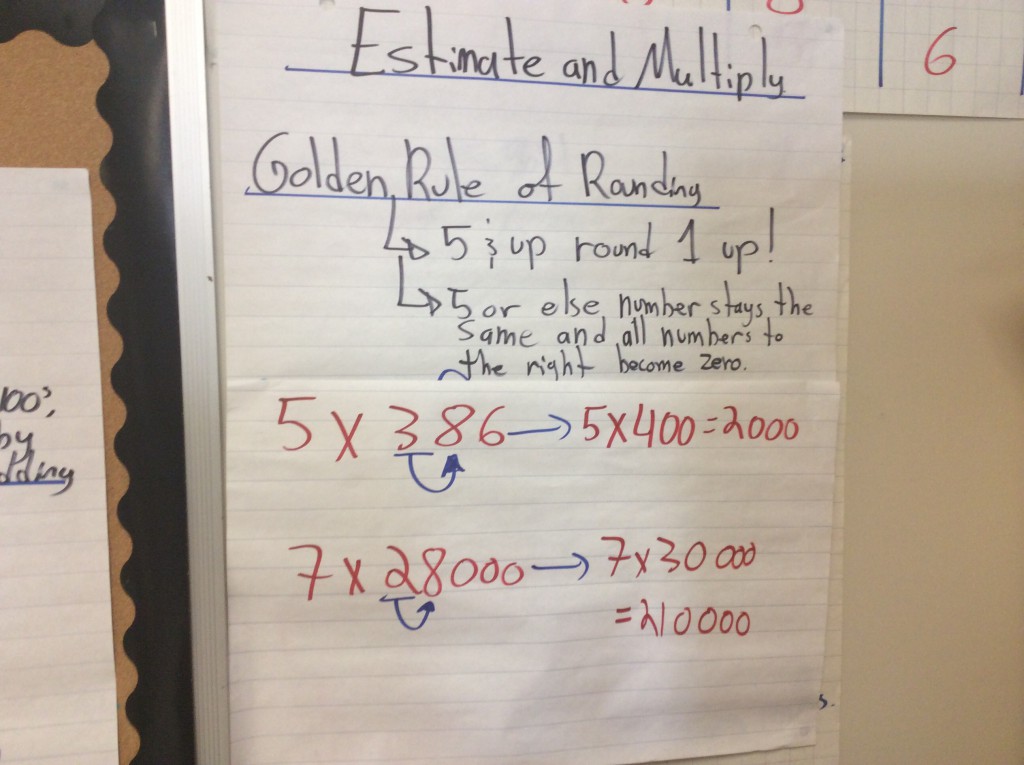 Estimate and Multiply
6
Golden Rule of Rounding
5 & up round 1 up!
5 or else number stays the
same and all numbers to
the right become zero.
100's,
by
5 x 386 → 5x400=2000
7 x 28000 → 7x30 000
=210000
s.